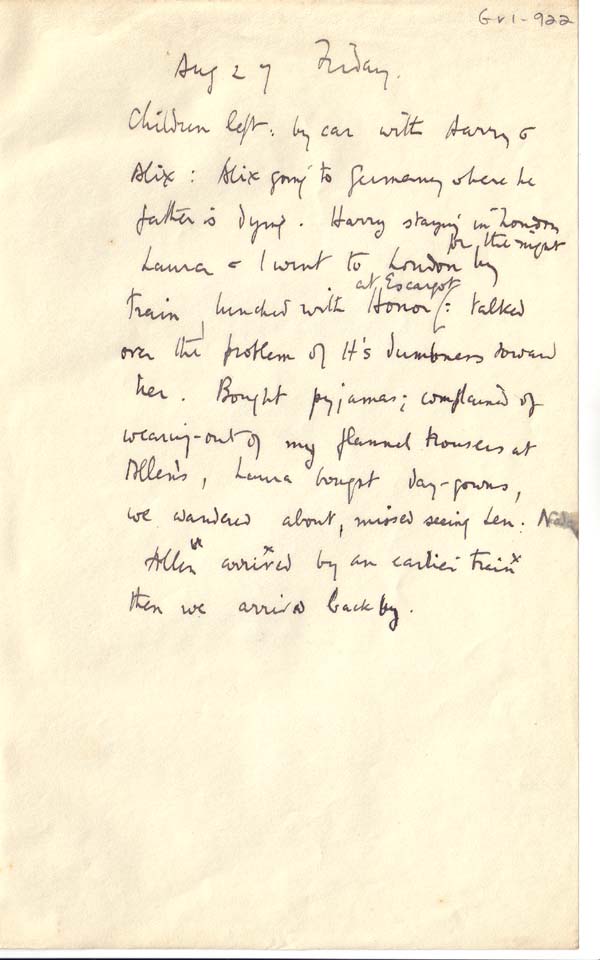 Gv1-922
Aug 27 Friday.
Children left: by car with Harry &
Alix: Alix going to Germany where he
father is dying. Harry staying in London
for the night
Laura & I went to London by
at Escargot
train, lunched with Honor (: talked
over the problem of H's dumbness toward
her. Bought pyjamas; complained of
wearing-out of my flannel trousers at
Allen's, Laura bought day-gowns,
we wandered about, missed seeing Len.
Allen arrived by an earlier train x
then we arrived back by.